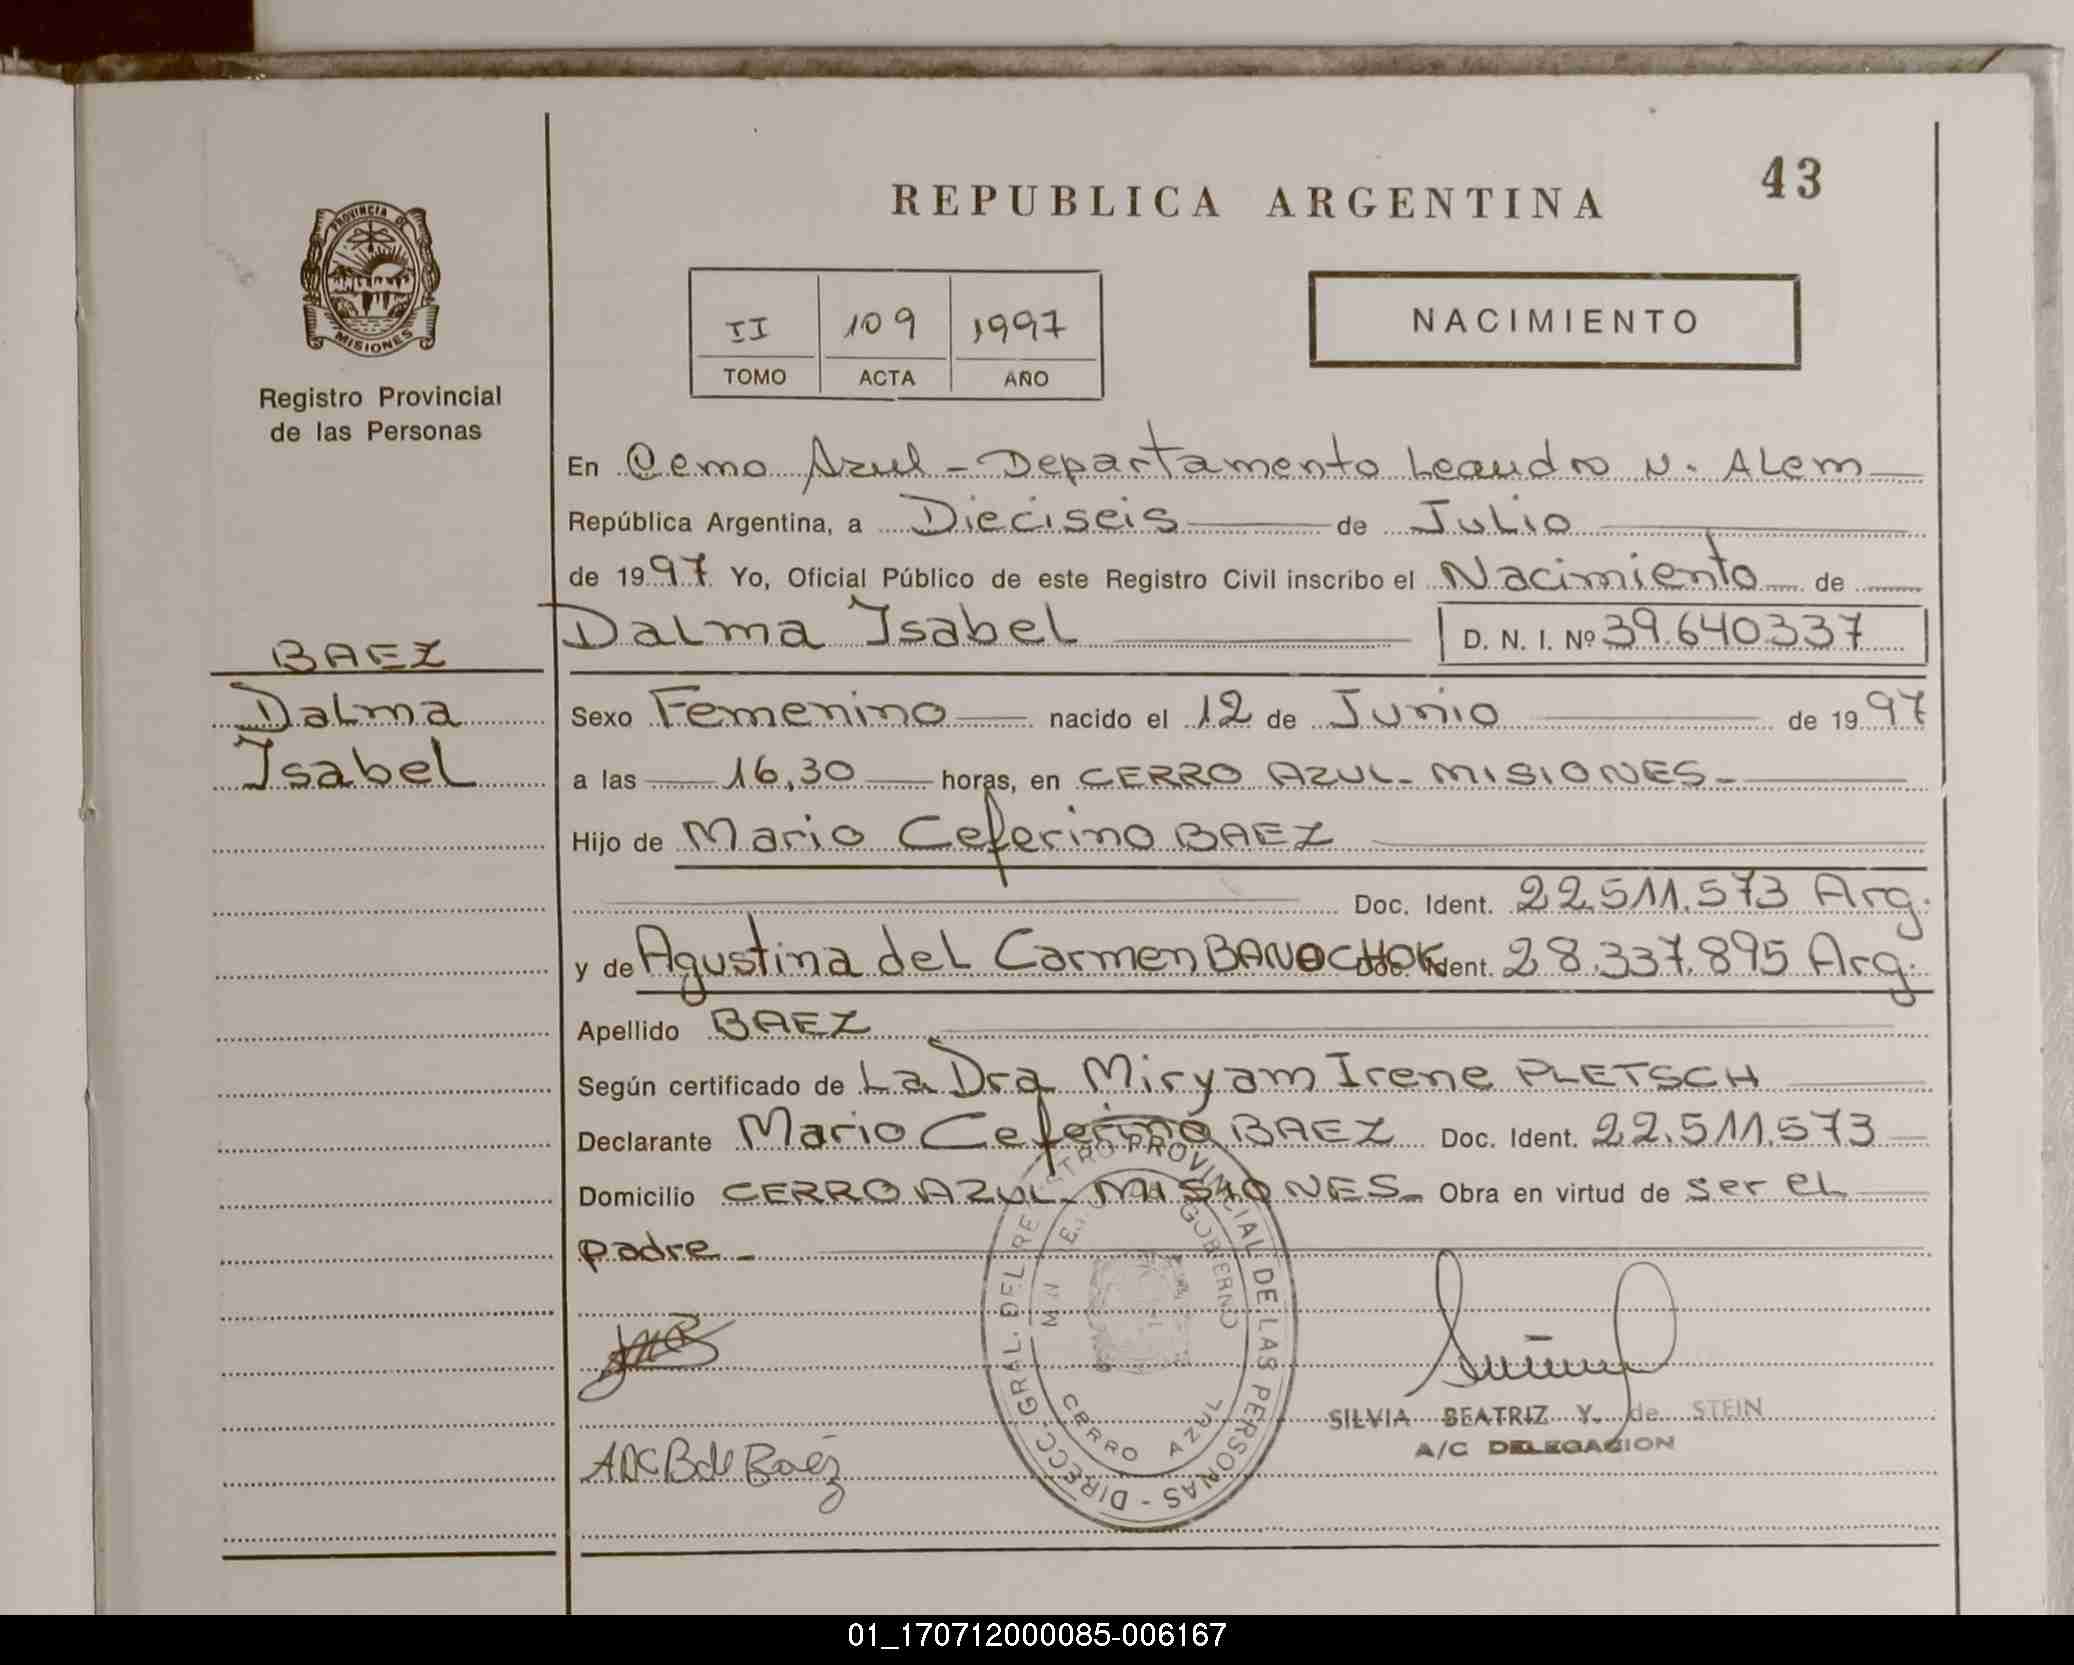 43
REPUBLICA ARGENTINA
PROVINCIA DE
MISIONES
II 109 1997
TOMO ACTA AÑO
NACIMIENTO
Registro Provincial
de las Personas
En Cerro Azul - Departamento Leandro N. Alem
República Argentina, a Dieciseis de Julio
de 1997 Yo, Oficial Público de este Registro Civil inscribo el Nacimiento de
Dalma Isabel D. N. I. Nº 39.640.337
BAEZ
Dalma
Isabel
Sexo Femenino nacido el 12 de Junio de 1997
a las 16,30 horas, en CERRO AZUL - MISIONES -
Hijo de Mario Ceferino BAEZ
Doc. Ident. 22.511.573 Arg.
y de Agustina del Carmen BANOCHOK Doc. Ident. 28.337.895 Arg.
Apellido BAEZ
Según certificado de La Dra Miryam Irene PLETSCH
Declarante Mario Ceferino BAEZ Doc. Ident. 22.511.573
Domicilio CERRO AZUL - MISIONES - Obra en virtud de ser el
padre -
DIRECC. GRAL. DEL REGISTRO PROVINCIAL DE LAS PERSONAS -
GOBIERNO
CERRO AZUL
SILVIA BEATRIZ Y. de STEIN
A/C DELEGACION
ADCB de Baéz
01_170712000085-006167